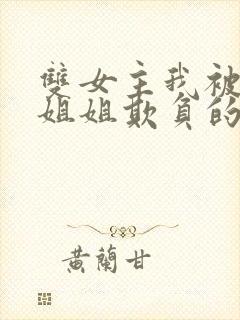 雙女主我被
姐姐欺負的
黃蘭甘